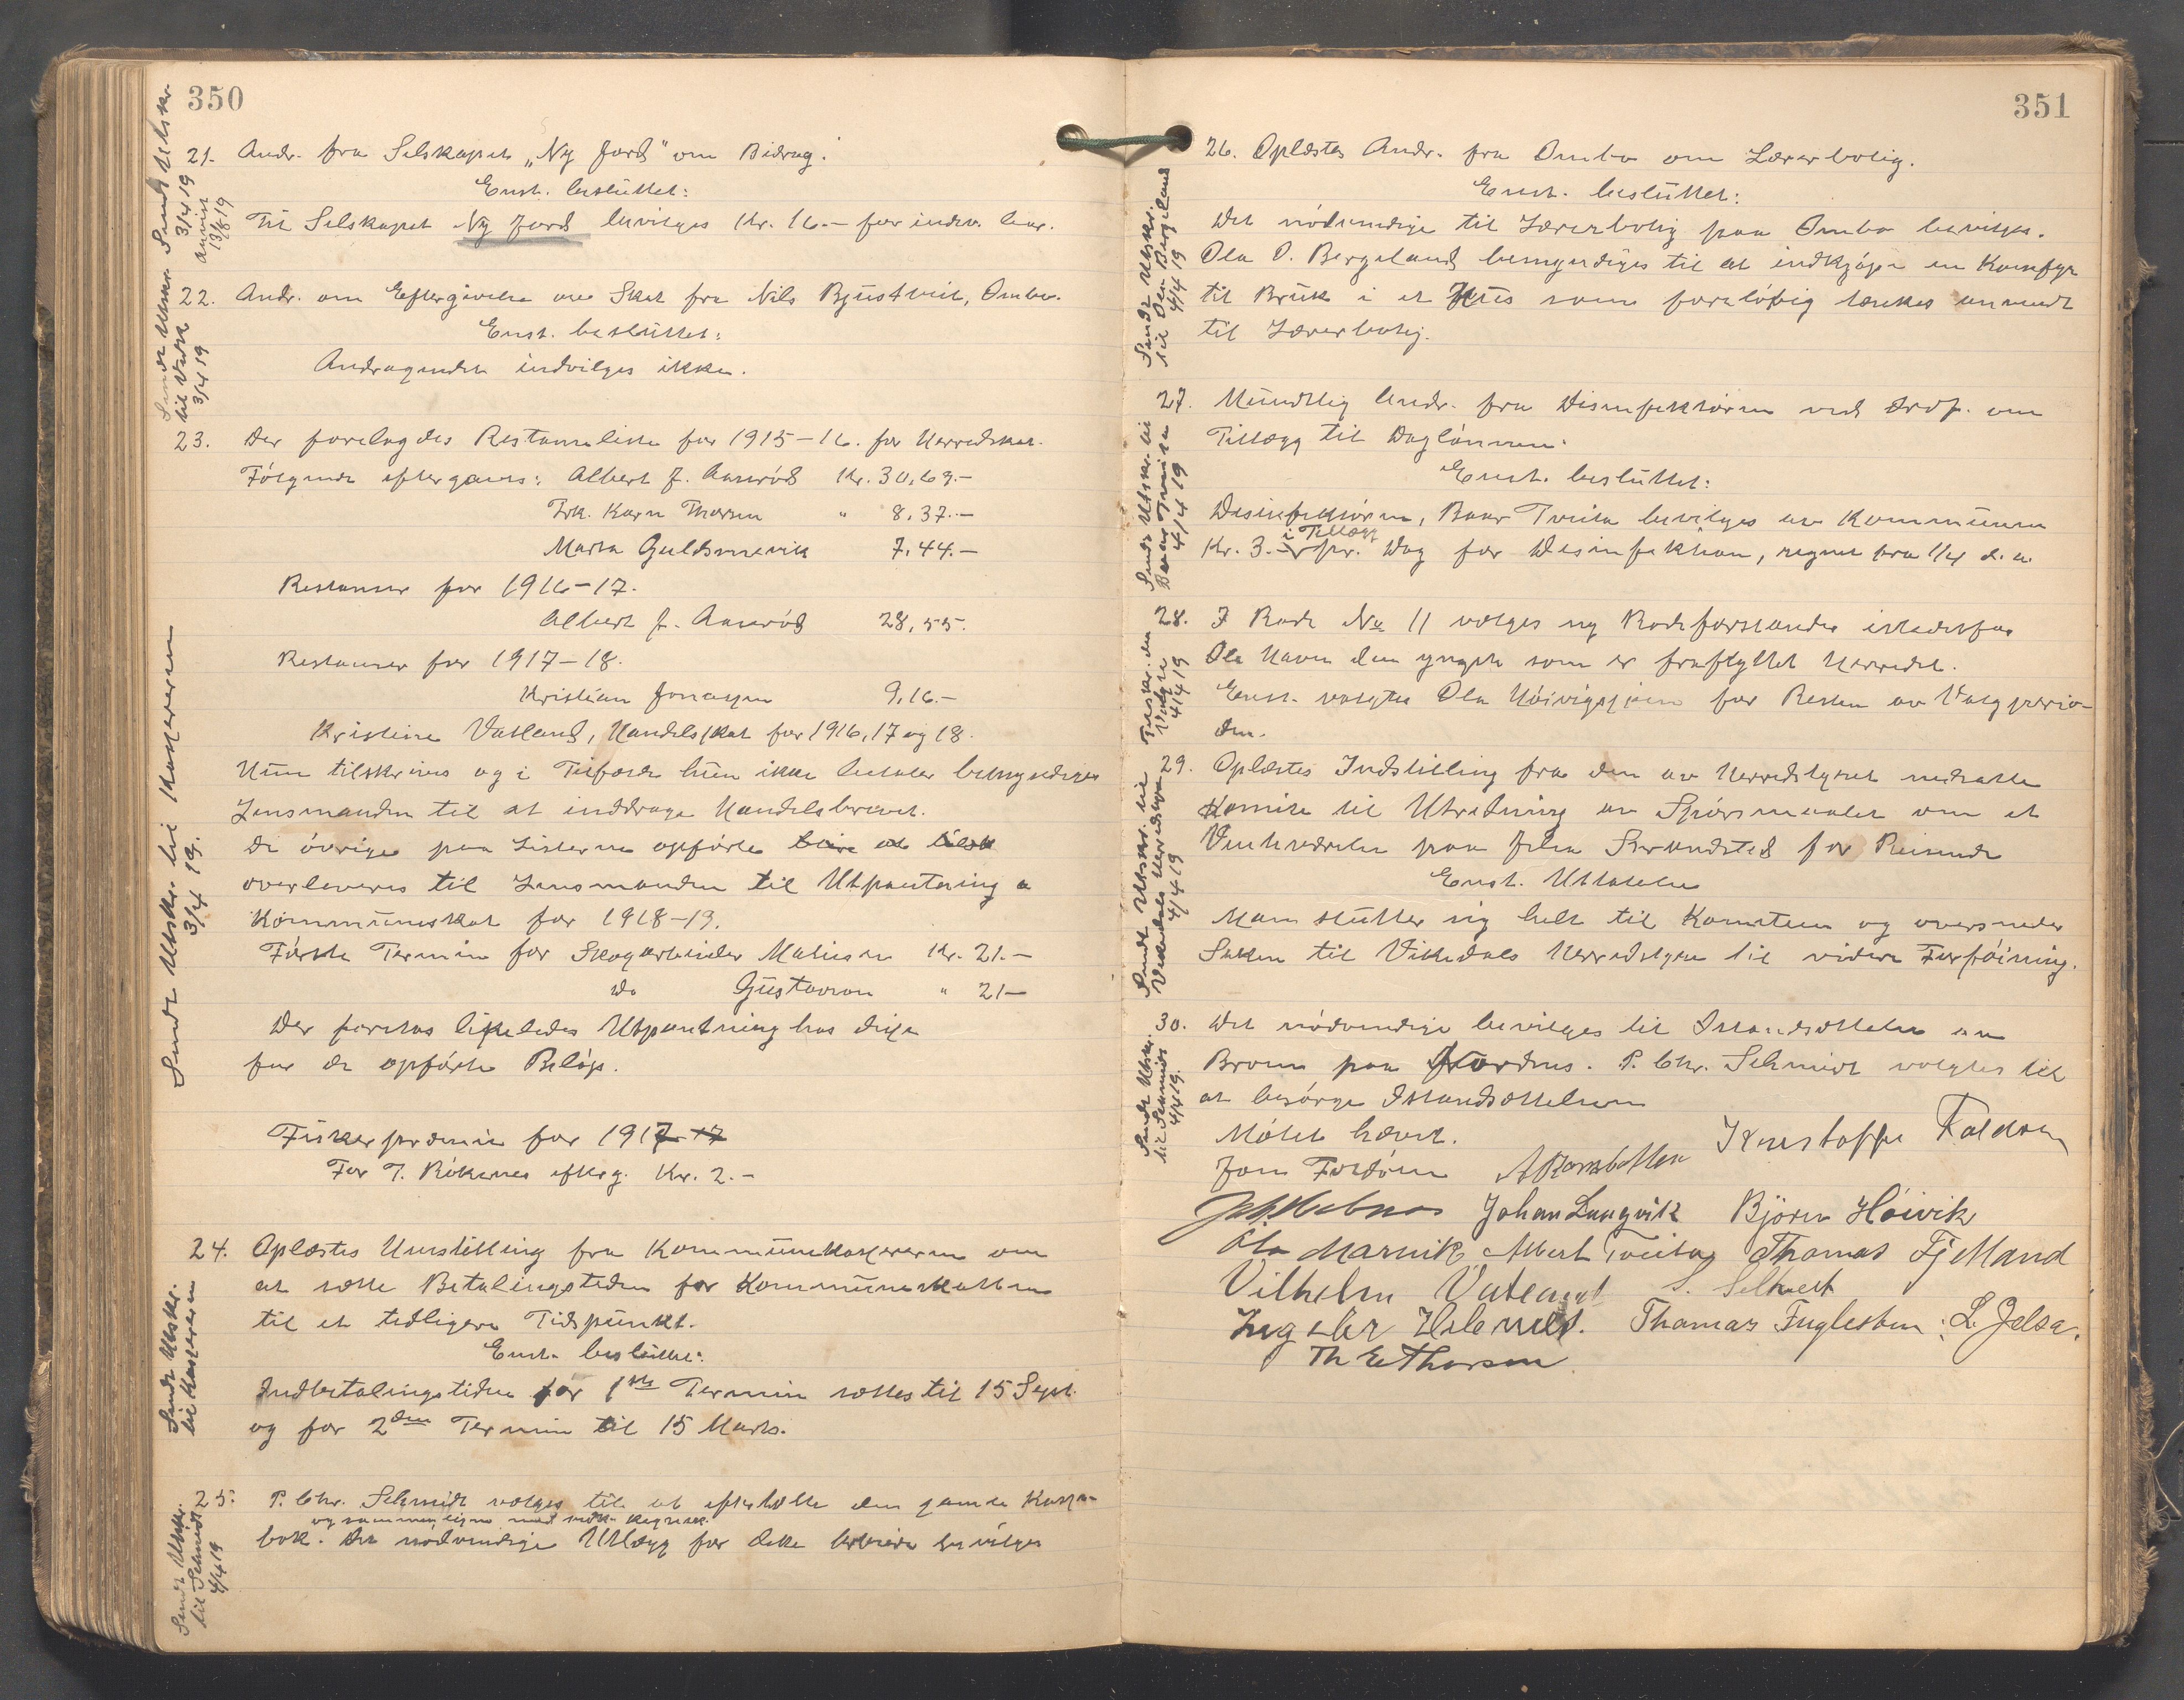 350
21. Andr. fra Selskapet „Ny Jord" om Bidrag.
Enst. besluttet:
Til Selskapet Ny Jord bevilges Kr. 16.- for indev. aar.
Sendt Utskr.
3/4 19
Anvist
13/8 19
22. Andr. om Eftergivelse av Skat fra Nils Bjustveit, Ombo.
Enst. besluttet:
Andragendet indvilges ikke.
Sendt Utskr.
3/4 19
23. Der forelagdes Restanseliste for 1915-16. for Herredskas.
Følgende eftergaves: Albert J. Aarsvöd Kr. 30,69.-
Frk. Karn Thorsen " 8,37.-
Marta Guldsmevik 7,44.-
Restanser for 1916-17.
Albert J. Aarsvöd 28,55.
Restanser for 1917-18.
Kristian Jonassen 9,16.-
Kristine Vatland, Handelsskat for 1916, 17 og 18.
Hun tilskrives og i Tilfælde hun ikke betaler bemyndiges
Lensmanden til at inddrage Handelsbrevet.
De øvrige paa Listerne opførte
overleveres til Lensmanden til Utpantning a
Kommuneskat for 1918-19.
Første Termin for Skogarbeider Matiesen Kr. 21.-
Do Gustavson " 21-
Der foretas likeledes Utpantning hos disse
for de opførte Beløp.
Sendt Utskr. til Kassereren
3/4 19.
Fiskerpremie for 1917
For T. Røkenes efterg. Kr. 2.-
24. Oplæstes Henstilling fra Kommunekassereren om
at sætte Betalingstiden for Kommuneskatten
til et tidligere Tidspunkt.
Enst. besluttet:
Indbetalingstiden for 1ste Termin sættes til 15 Sept.
og for 2den Termin til 15 Marts.
Sendt Utskr.
til Kassereren
25. P. Chr. Schmidt vælges til at eftertælle den gamle Kasse-
og sammenligne med vedk. Regnsk.
bok. Det nødvendige Utlægg for dette Arbeide bevilges
Sendt Utskr.
til Schmidt
4/4 19
351
26. Oplæstes Andr. fra Ombo om Lærerbolig.
Enst. besluttet:
Det nødvendige til Lærerbolig paa Ombo bevilges.
Ola O. Bergeland bemyndiges til at indkjøpe en Komfyr
til Bruk i et Hus som foreløbig tænkes anvendt
til Lærerbolig.
Sendt Utskr.
til Ola Bergeland
4/4 19
27. Mundtlig Andr. fra Desinfektøren ved om
Tillægg til Daglønnen.
Enst. besluttet:
Desinfektøren, Baar Tveita bevilges av Kommunen
i Tillægg
Kr. 3.- pr. Dag for Desinfektion, regnet fra 1/4 d. a.
Sendt Utskr. til
Baar Tveita
4/4 19
28. I Rode No 11 vælges ny Rodeforstander istedetfor
Ola Haven den yngste som er fraflyttet Herredet.
Enst. valgtes Ola for Resten av Valgperio-
den.
4/4 19
29. Oplæstes Indstilling fra den av Herredstyret nedsatte
Komite til Utredning av Spørsmaalet om et
Venteværelse paa Jelsa Strandsted for Reisende
Enst. Uttalelse
Man slutter sig helt til Komiteen og oversender
Saken til Vikedals Herredstyre til videre Forføining.
Sendt Utskr. til
Vikedals Herredstyre
4/4 19
30. Det nødvendige bevilges til Istandsættelse av
Broen paa . P. Chr. Schmidt valgtes til
at besørge Istandsættelsen
Møtet hævet.
Sendt Utskr.
til Schmidt
4/4 19.
Kristoffer Foldøen
Jon Foldøen
Johan Laugvik Bjørn Høivik
Ola Marvik Albert Tveita Thomas Fjelland
Vilhelm Vatland
Ingebr Thomas Fuglesteen L. Jelsa.
Th E Thorsen